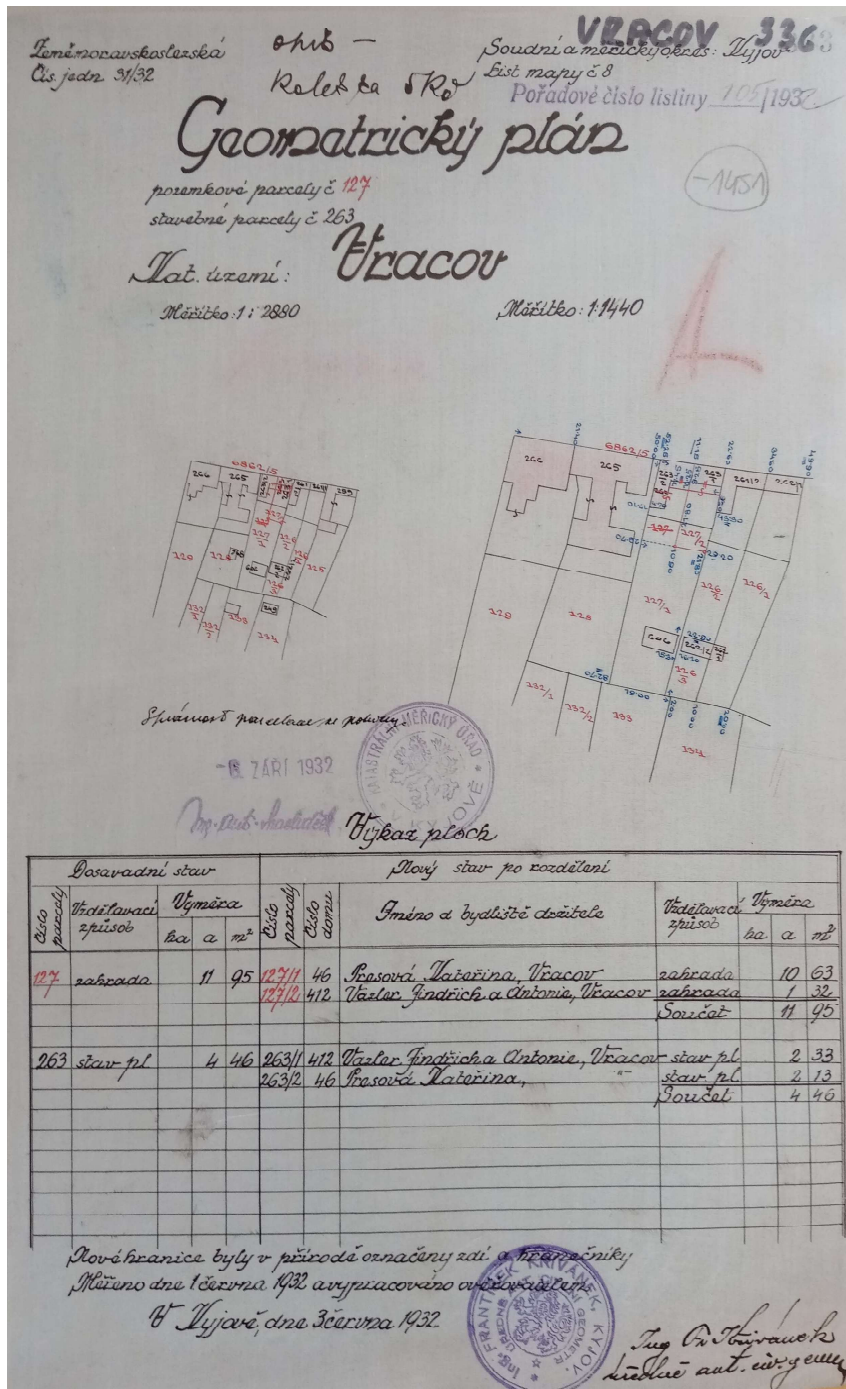 VRACOV 336
Země: moravskoslezská
Čís. jedn. 31/32
opis –
Soudní a měřický okres: Kyjov
List mapy č 8
Pořadové číslo listiny 105/1932
Geometrický plán
pozemkové parcely č 127
stavebné parcely č 263
-1451
Kat. území: Vracov
Měřítko: 1: 2880
Měřítko: 1:1440
A
6862/5
266
265
6862/5
265
127/2
127/2
126/2
128
132/1
132/2
133
134
Správnost parcelace se potvrzuje
ZÁŘÍ 1932
KATASTRÁLNÍ MĚŘICKÝ ÚŘAD V KYJOVĚ
Výkaz ploch
Dosavadní stav Nový stav po rozdělení
Číslo parcely Vzdělavací způsob Výměra ha a m² Číslo parcely Číslo domu Jméno a bydliště držitele Vzdělavací způsob Výměra ha a m²
127 zahrada 11 95 127/1 46 Presová Kateřina, Vracov zahrada 10 63
127/2 412 Vazler Jindřich a Antonie, Vracov zahrada 1 32
Součet 11 95
263 stav pl 4 46 263/1 412 Vazler Jindřich a Antonie, Vracov stav pl 2 33
263/2 46 Presová Kateřina, -"- stav pl 2 13
Součet 4 46
Nové hranice byly v přírodě označeny zdí a hranečníky
Měřeno dne 1 června 1932 a vypracováno ověřovatelem
V Kyjově, dne 3 června 1932
Ing. FRANTIŠEK KŘIVÁNEK, KYJOV.
GEOMETR
Ing Fr Křivánek
úředně aut. civ. geom